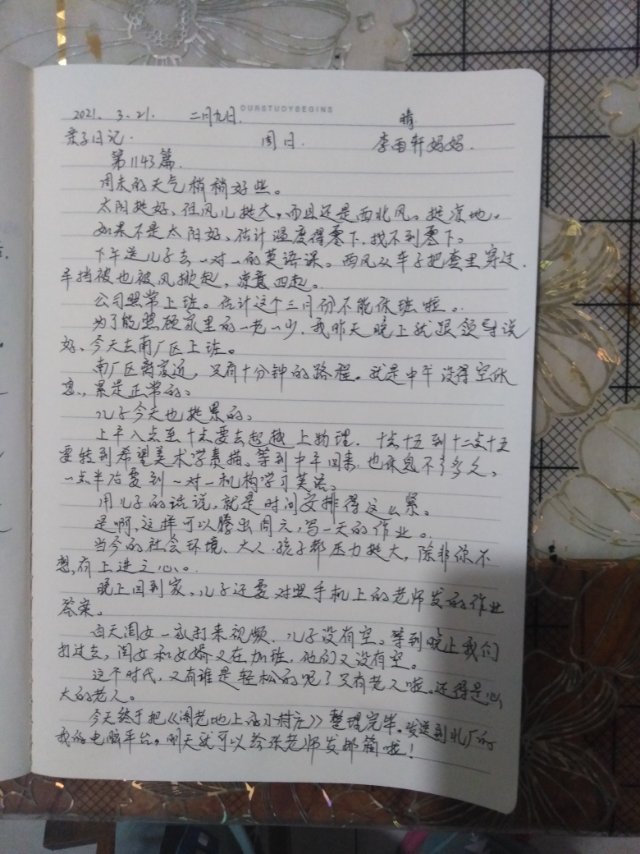 OURSTUDYBEGINS
2021. 3. 21. 二月九日. 晴
亲子日记. 周日. 李雨轩妈妈.
第1143篇.
周末的天气稍稍好些。
太阳挺好、但风儿挺大,而且还是西北风。挺凉地。
如果不是太阳好、估计温度得零下,找不到零下。
下午送儿子去一对一的英语课。西风从车子把套里穿过.
车挡被也被风掀起,凉意四起。
公司照常上班。估计这个三月份不能休班啦。
为了能照顾家里的一老一少,我昨天晚上就跟领导说
好、今天去南厂区上班。
南厂区离家近,只有十分钟的路程。就是中午没得空休
息、累是正常的、
儿子今天也挺累的、
上午八点至十点要去超越上物理.十点十五到十二点十五
要转到希望美术学素描。等到中午回来,也休息不了多久。
一点半后要到一对一机构学习英语。
用儿子的话说,就是时间安排得这么紧。
是啊,这样可以腾出周六,写一天的作业。
当今的社会环境、大人孩子都压力挺大,除非你不
想有上进之心。
晚上回到家、儿子还要对照手机上的老师发的作业
答案。
白天闺女一家打来视频、儿子没有空。等到晚上我们
打过去,闺女和女婿又在加班,他们又没有空。
这个时代,又有谁是轻松的呢?只有老人啦。还得是心
大的老人。
今天终于把《闹老地上的小村庄》整理完毕。发送到北厂的
我的电脑平台。明天就可以给张老师发邮箱啦!